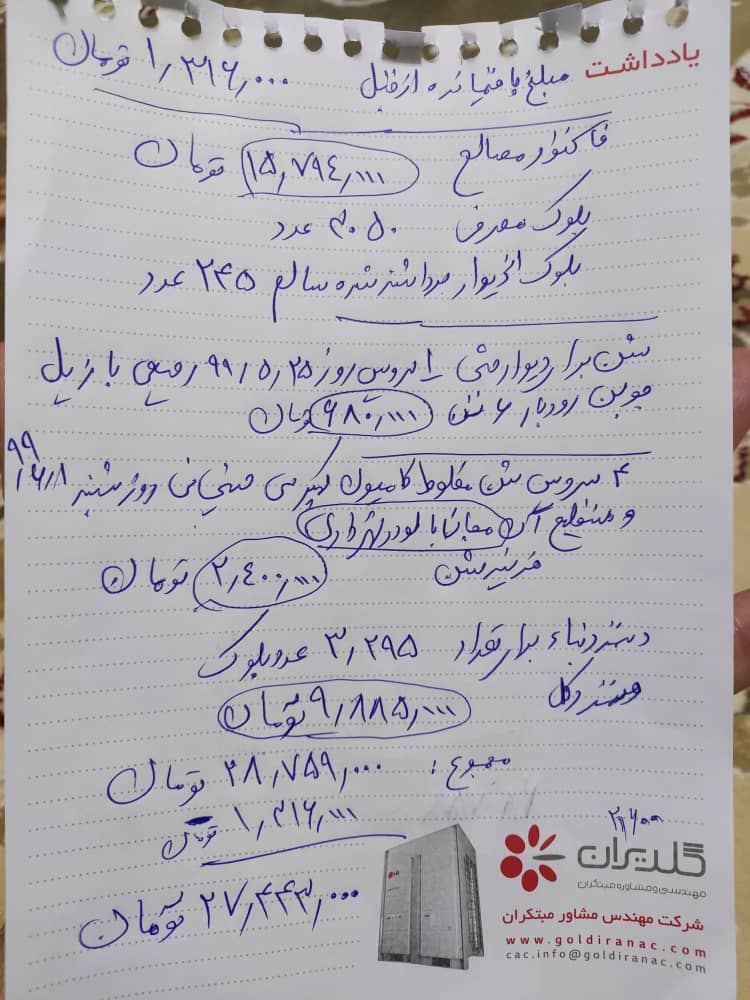 یادداشت
مبلغ باقیمانده از قبل ۱٫۳۱۶٫۰۰۰ تومان
فاکتور مصالح ۱۵٫۷۹۴٫۰۰۰ تومان
بلوک مصرفی ۳۰۵۰ عدد
بلوک از دیوار برداشته شده سالم ۲۴۵ عدد
شن برای دیوار متی ۱ سرویس روز ۹۹/۵/۲۵ با زیل
چوبین رودبار ۶ تن ۶۸۰٫۰۰۰ تومان
۹۹/۶/۱
۴ سرویس شن مخلوط کامیون روز شنبه
و آن مجانا با لودر شهرداری
هزینه شن ۲٫۴۰۰٫۰۰۰ تومان
دستمزد بناء برای تعداد ۳٫۲۹۵ عدد بلوک
دستمزد کل ۹٫۸۸۵٫۰۰۰ تومان
مجموع: ۲۸٫۷۵۹٫۰۰۰ تومان
۱٫۳۱۶٫۰۰۰ تومان
۲۷٫۴۴۳٫۰۰۰ تومان
LG
گلدیران
مهندسی و مشاوره مبتکران
شرکت مهندس مشاور مبتکران
www.goldiranac.com
cac.info@goldiranac.com